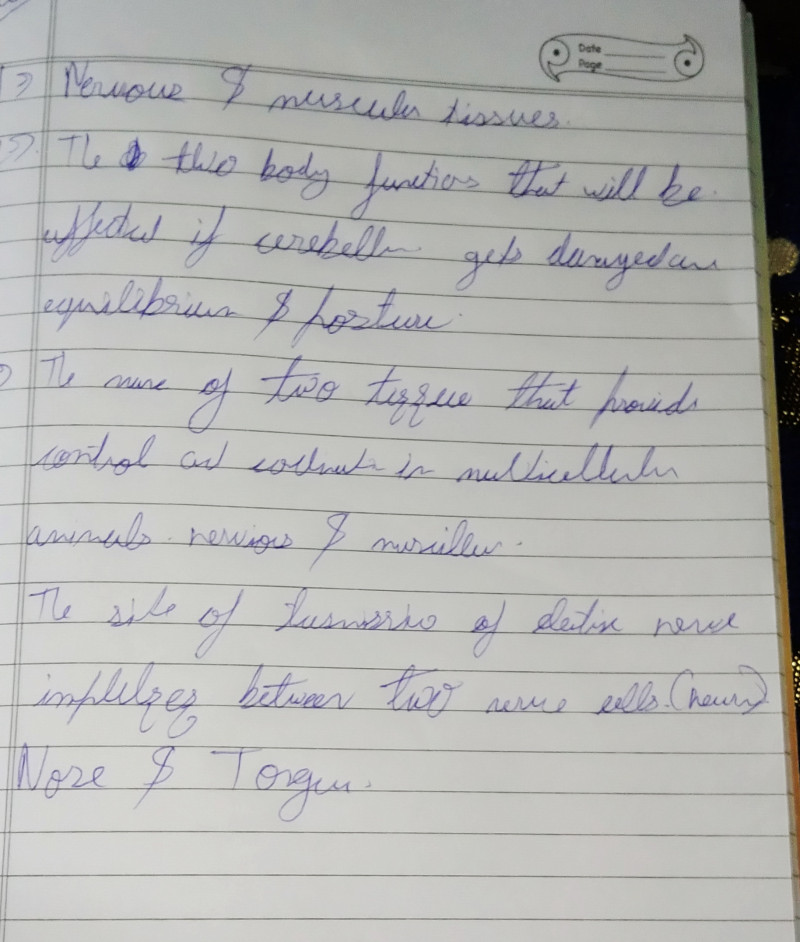 Date
Page
Nervous & muscular tissues.
The two body functions that will be
affected if cerebellm gets damaged are
equilibrium & posture.
The name of two tissue that provids
control and in multicellular
animals. nervios & musculler.
The site of of nerve
between two nerve cells.
Nose & Tongue.